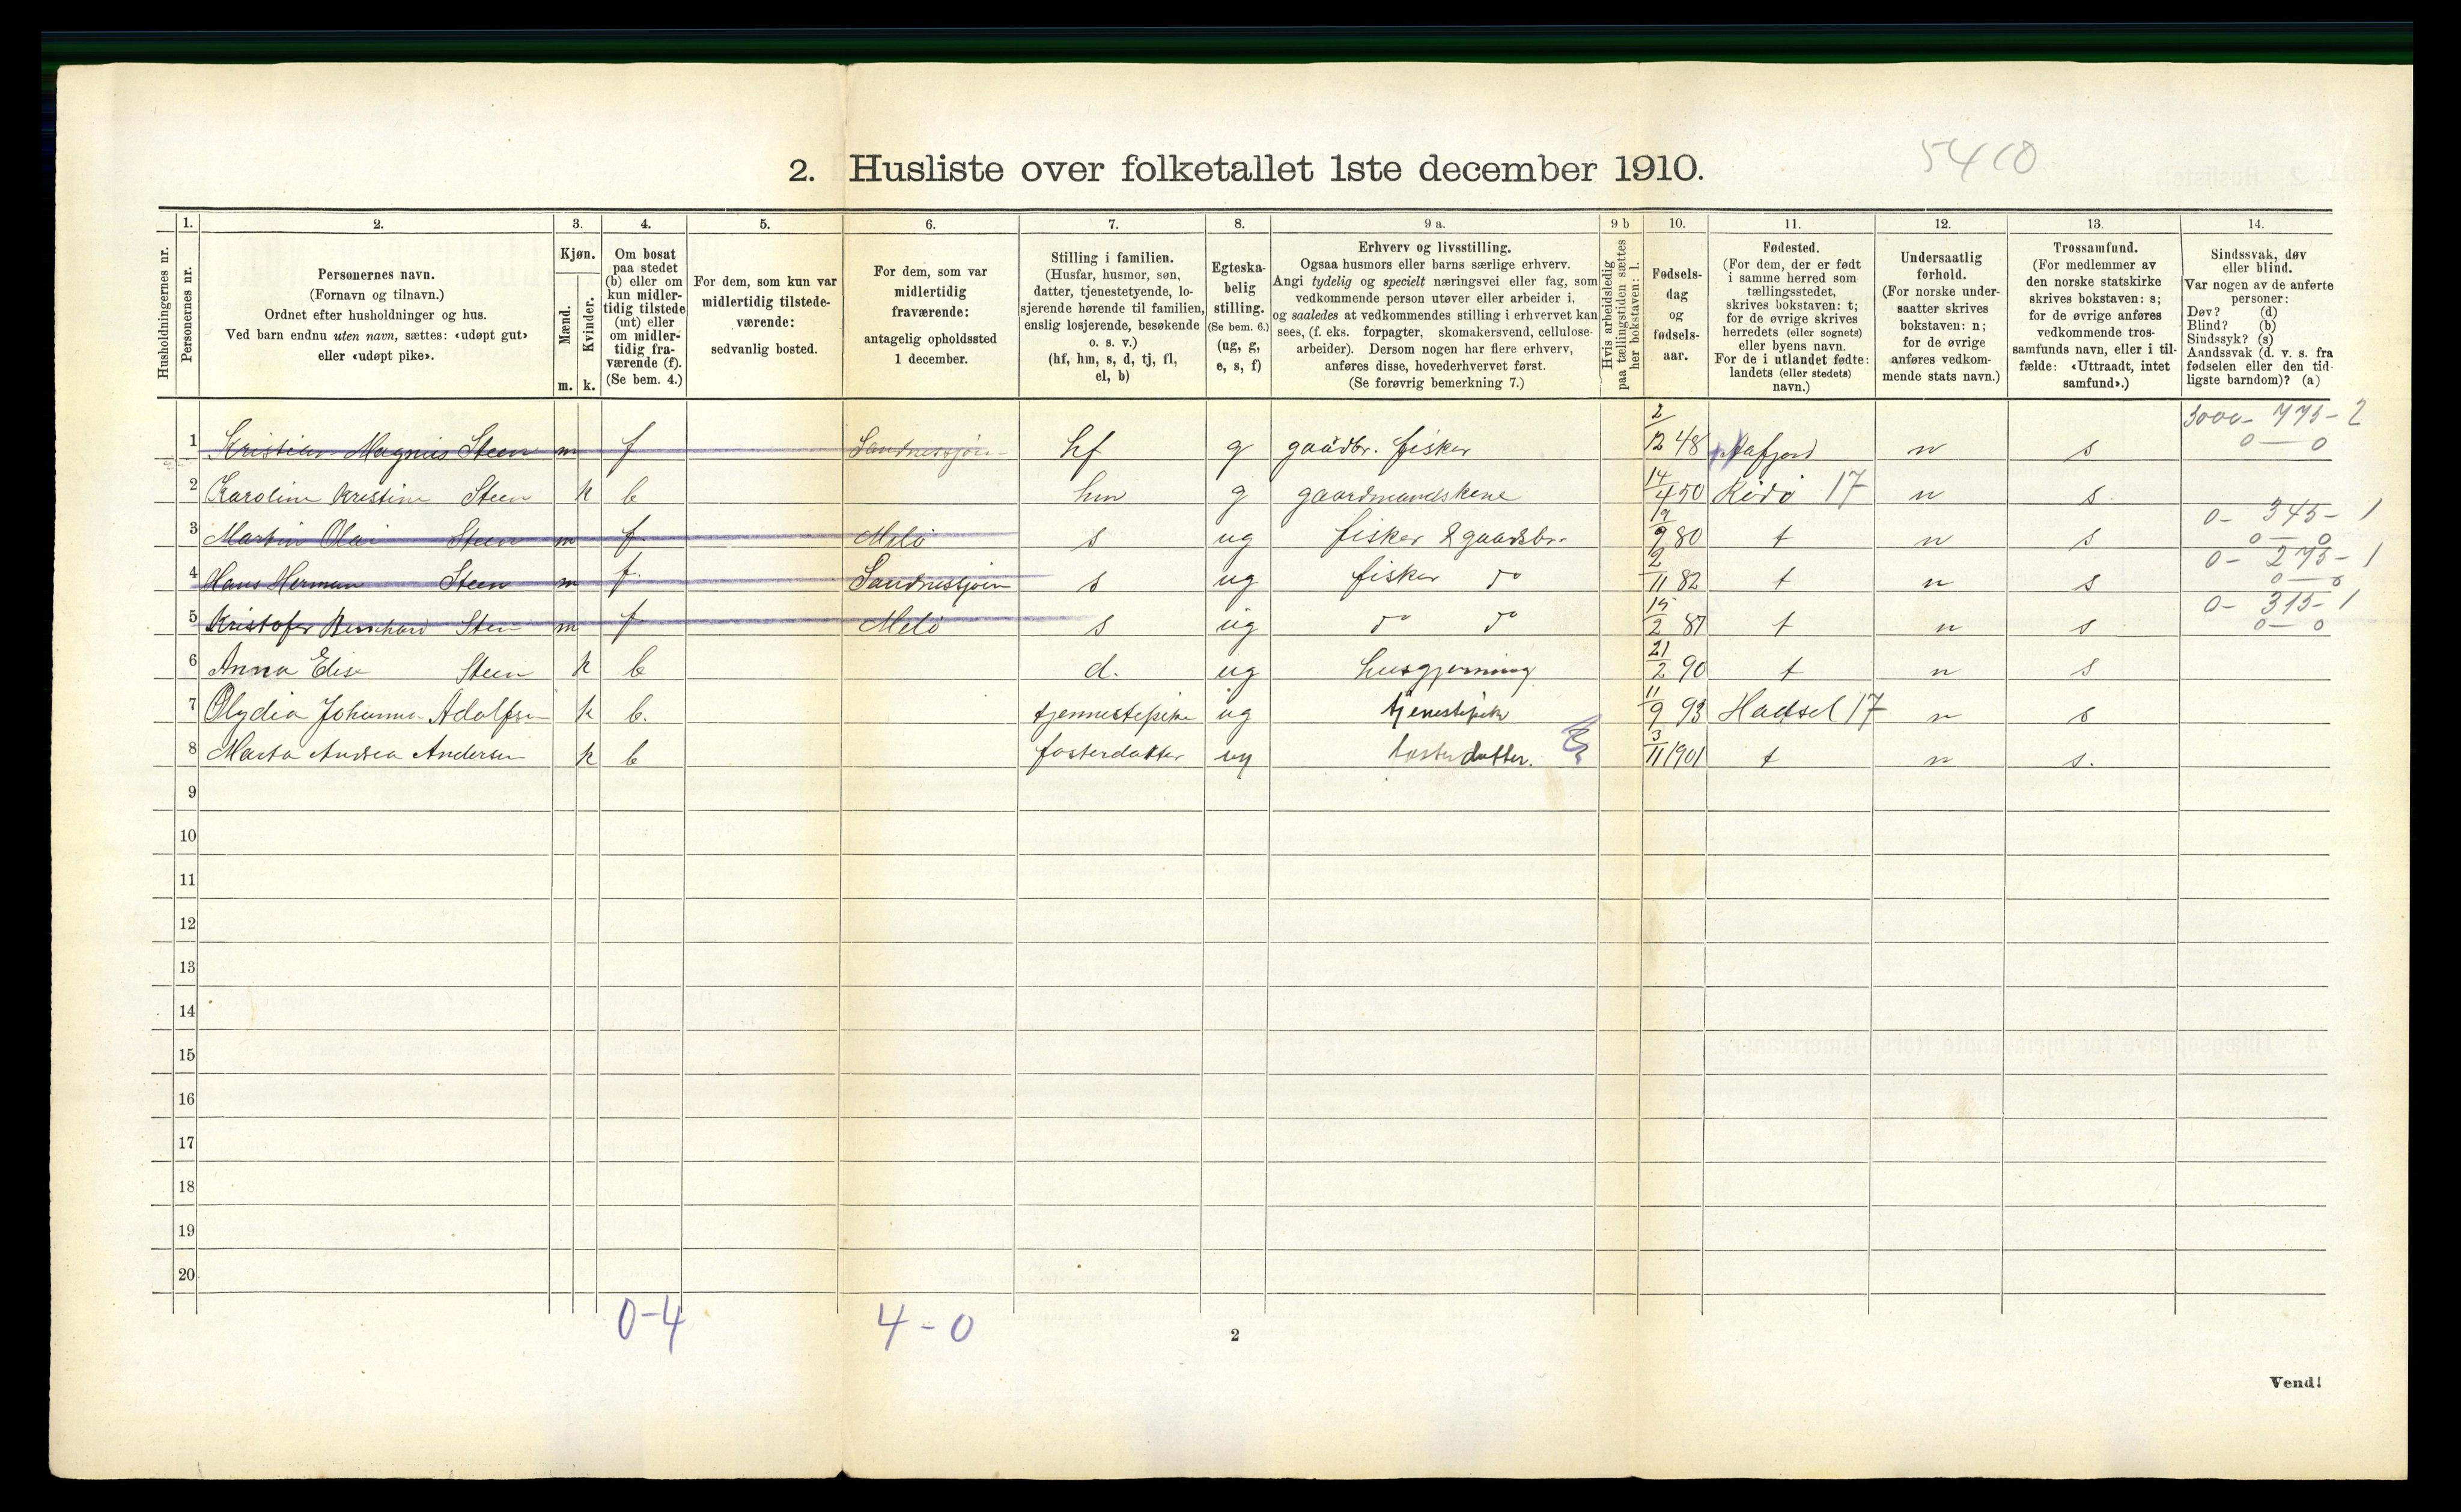 5410
2. Husliste over folketallet 1ste december 1910.
1. 2. 3. 4. 5. 6. 7. 8. 9 a. 9 b 10. 11. 12. 13. 14.
Husholdningernes nr.
Personernes nr.
Personernes navn.
(Fornavn og tilnavn.)
Ordnet efter husholdninger og hus.
Ved barn endnu uten navn, sættes: «udøpt gut»
eller «udøpt pike».
Kjøn.
Mænd.
Kvinder.
m. k.
Om bosat
paa stedet
(b) eller om
kun midler-
tidig tilstede
(mt) eller
om midler-
tidig fra-
værende (f).
(Se bem. 4.)
For dem, som kun var
midlertidig tilstede-
værende:
sedvanlig bosted.
For dem, som var
midlertidig
fraværende:
antagelig opholdssted
1 december.
Stilling i familien.
(Husfar, husmor, søn,
datter, tjenestetyende, lo-
sjerende hørende til familien,
enslig losjerende, besøkende
o. s. v.)
(hf, hm, s, d, tj, fl,
el, b)
Egteska-
belig
stilling.
(Se bem. 6.)
(ug, g,
e, s, f)
Erhverv og livsstilling.
Ogsaa husmors eller barns særlige erhverv.
Angi tydelig og specielt næringsvei eller fag, som
vedkommende person utøver eller arbeider i,
og saaledes at vedkommendes stilling i erhvervet kan
sees, (f. eks. forpagter, skomakersvend, cellulose-
arbeider). Dersom nogen har flere erhverv,
anføres disse, hovederhvervet først.
(Se forøvrig bemerkning 7.)
Hvis arbeidsledig
paa tællingstiden sættes
her bokstaven: l.
Fødsels-
dag
og
fødsels-
aar.
Fødested.
(For dem, der er født
i samme herred som
tællingsstedet,
skrives bokstaven: t;
for de øvrige skrives
herredets (eller sognets)
eller byens navn.
For de i utlandet fødte:
landets (eller stedets)
navn.)
Undersaatlig
forhold.
(For norske under-
saatter skrives
bokstaven: n;
for de øvrige
anføres vedkom-
mende stats navn.)
Trossamfund.
(For medlemmer av
den norske statskirke
skrives bokstaven: s;
for de øvrige anføres
vedkommende tros-
samfunds navn, eller i til-
fælde: «Uttraadt, intet
samfund».)
Sindssvak, døv
eller blind.
Var nogen av de anførte
personer:
Døv? (d)
Blind? (b)
Sindssyk? (s)
Aandssvak (d. v. s. fra
fødselen eller den tid-
ligste barndom)? (a)
1 Kristian Magnus Steen m f Sandnessjøen hf g gaardbr. fisker 2/12 48 n s 3000- 775- 2 0 — 0
2 Karoline Kristine Steen k b hm g gaardmandskone 14/4 50 Rödö 17 n s
3 Martin Olai Steen m f Melö s ug fisker & gaardsbr. 19/9 80 t n s 0- 345- 1 0 — 0
4 Hans Herman Steen m f. Sandnessjøen s ug fisker do 2/11 82 t n s 0- 275- 1 0 — 0
5 Kristofer Bernhard Sten m f Melö s ug do do 15/2 87 t n s 0- 315- 1 0 — 0
6 Anna Elise Steen k b d. ug husgjerning 21/2 90 t n s
7 Olydia Johanna Adolfsen k b. tjennestepike ug tjenestepike 11/9 93 Hadsel 17 n s
8 Marta Andrea Andersen k b fosterdatter ug fosterdatter. 3/11 1901 t n s.
9
10
11
12
13
14
15
16
17
18
19
20
0-4 4-0
2
Vend!